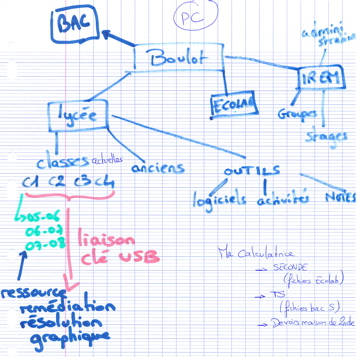 PC
BAC
Boulot
admini
stration
IREM
ECOLAB
Groupes
stages
lycée
classes actuelles
anciens
C1 C2 C3 C4
OUTILS
logiciels activités
NOTES
05-06
06-07
07-08
liaison
clé USB
ressource
remédiation
résolution
graphique
Ma Calculatrice
→ SECONDE
(fichiers Ecolab)
→ TS
(fichiers bac S)
→ Devoirs maison de 2nde